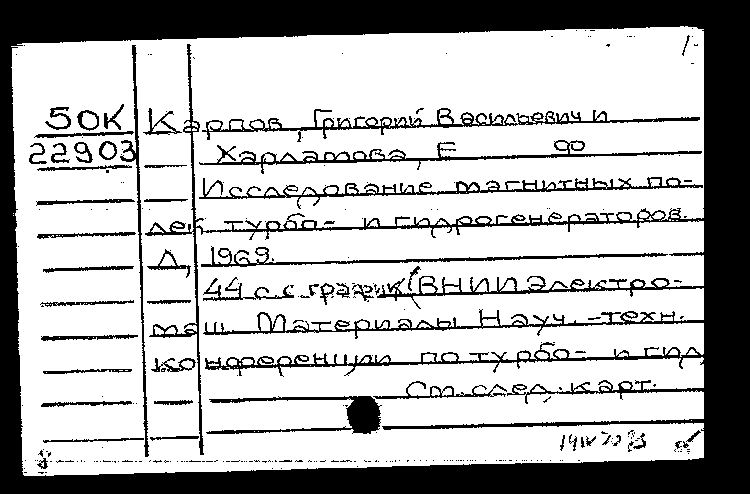 50К Карпов, Григорий Васильевич и
22903 Харламова, Е
Исследование магнитных по-
лей турбо- и гидрогенераторов.
Л, 1969.
44 с. с график (ВНИИЭлектро-
маш. Материалы Науч.-техн.
конференции по турбо- и гид
См. след. карт.